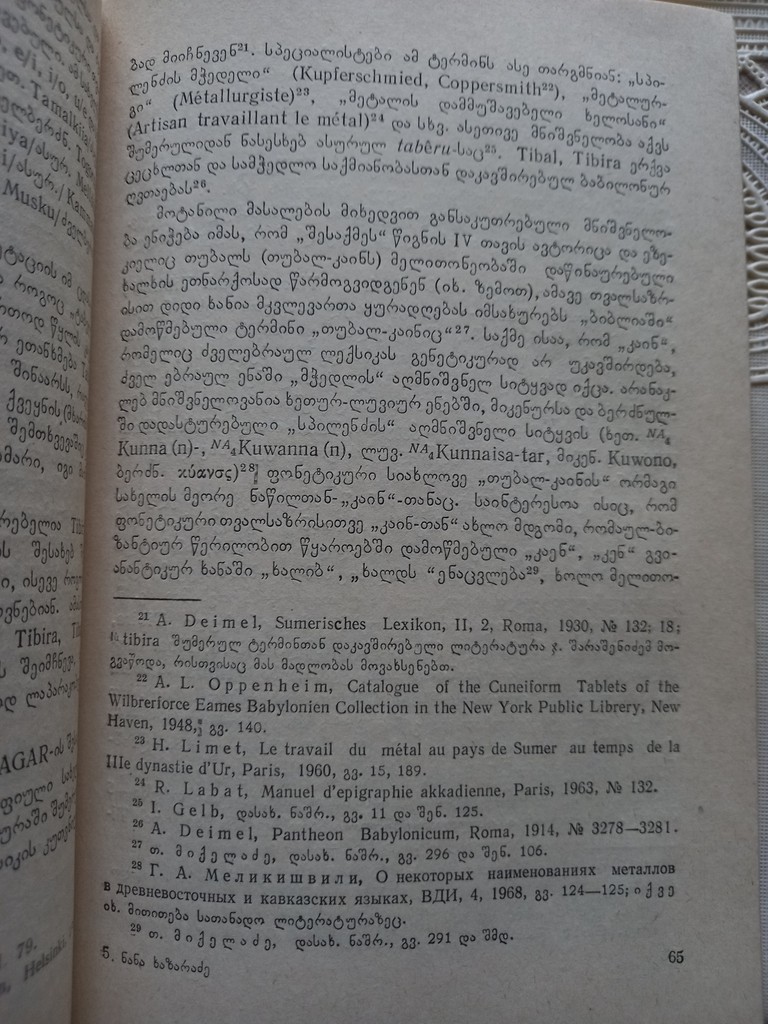 e/i, i/o, u/e
Tamalkija
Musku/
Tibira,
AGAR-ის
79.
Helsinki
ბად მიიჩნევენ²¹. სპეციალისტები ამ ტერმინს ასე თარგმნიან: „სპი-
ლენძის მჭედელი“ (Kupferschmied, Coppersmith²²), „მეტალურ-
გი“ (Métallurgiste)²³, „მეტალის დამმუშავებელი ხელოსანი“
(Artisan travaillant le métal)²⁴ და სხვ. ასეთივე მნიშვნელობა აქვს
შუმერულიდან ნასესხებ ასურულ tabēru-საც²⁵. Tibal, Tibira ერქვა
ცეცხლთან და სამჭედლო საქმიანობასთან დაკავშირებულ ბაბილონურ
ღვთაებას²⁶.
მოტანილი მასალების მიხედვით განსაკუთრებული მნიშვნელო-
ბა ენიჭება იმას, რომ „შესაქმეს“ წიგნის IV თავის ავტორიცა და ეზე-
კიელიც თუბალს (თუბალ-კაინს) მელითონეობაში დაწინაურებული
ხალხის ეთნარქოსად წარმოგვიდგენენ (იხ. ზემოთ), ამავე თვალსაზრ-
ისით დიდი ხანია მკვლევართა ყურადღებას იმსახურებს „ბიბლიაში“
დამოწმებული ტერმინი „თუბალ-კაინიც“²⁷. საქმე ისაა, რომ „კაინ“,
რომელიც ძველებრაულ ლექსიკას გენეტიკურად არ უკავშირდება,
ძველ ებრაულ ენაში „მჭედლის“ აღმნიშვნელ სიტყვად იქცა. არანაკ-
ლებ მნიშვნელოვანია ხეთურ-ლუვიურ ენებში, მიკენურსა და ბერძნულ-
ში დადასტურებული „სპილენძის“ აღმნიშვნელი სიტყვის (ხეთ. NA₄
Kunna (n)-, NA₄Kuwanna (n), ლუვ. NA₄Kunnaisa-tar, მიკენ. Kuwono,
ბერძნ. κύανος)²⁸ ფონეტიკური სიახლოვე „თუბალ-კაინის“ ორმაგი
სახელის მეორე ნაწილთან-„კაინ“-თანაც. საინტერესოა ისიც, რომ
ფონეტიკური თვალსაზრისითვე „კაინ-თან“ ახლო მდგომი, რომაულ-ბი-
ზანტიურ წერილობით წყაროებში დამოწმებული „კაენ“, „კენ“ გვი-
ანანტიკურ ხანაში „ხალიბ“, „ხალდს “ენაცვლება²⁹, ხოლო მელითო-
²¹ A. Deimel, Sumerisches Lexikon, II, 2, Roma, 1930, № 132; 18;
tibira შუმერულ ტერმინთან დაკავშირებული ლიტერატურა ჯ. შარაშენიძემ მო-
გვაწოდა, რისთვისაც მას მადლობას მოვახსენებთ.
²² A. L. Oppenheim, Catalogue of the Cuneiform Tablets of the
Wilbrerforce Eames Babylonien Collection in the New York Public Librery, New
Haven, 1948, გვ. 140.
²³ H. Limet, Le travail du métal au pays de Sumer au temps de la
IIIe dynastie d'Ur, Paris, 1960, გვ. 15, 189.
²⁴ R. Labat, Manuel d'epigraphie akkadienne, Paris, 1963, № 132.
²⁵ I. Gelb, დასახ. ნაშრ., გვ. 11 და შენ. 125.
²⁶ A. Deimel, Pantheon Babylonicum, Roma, 1914, № 3278—3281.
²⁷ თ. მიქელაძე, დასახ. ნაშრ., გვ. 296 და შენ. 106.
²⁸ Г. А. Меликишвили, О некоторых наименованиях металлов
в древневосточных и кавказских языках, ВДИ, 4, 1968, გვ. 124—125; იქვე
იხ. მითითება სათანადო ლიტერატურაზეც.
²⁹ თ. მიქელაძე, დასახ. ნაშრ., გვ. 291 და შმდ.
5. ნანა ხაზარაძე
65